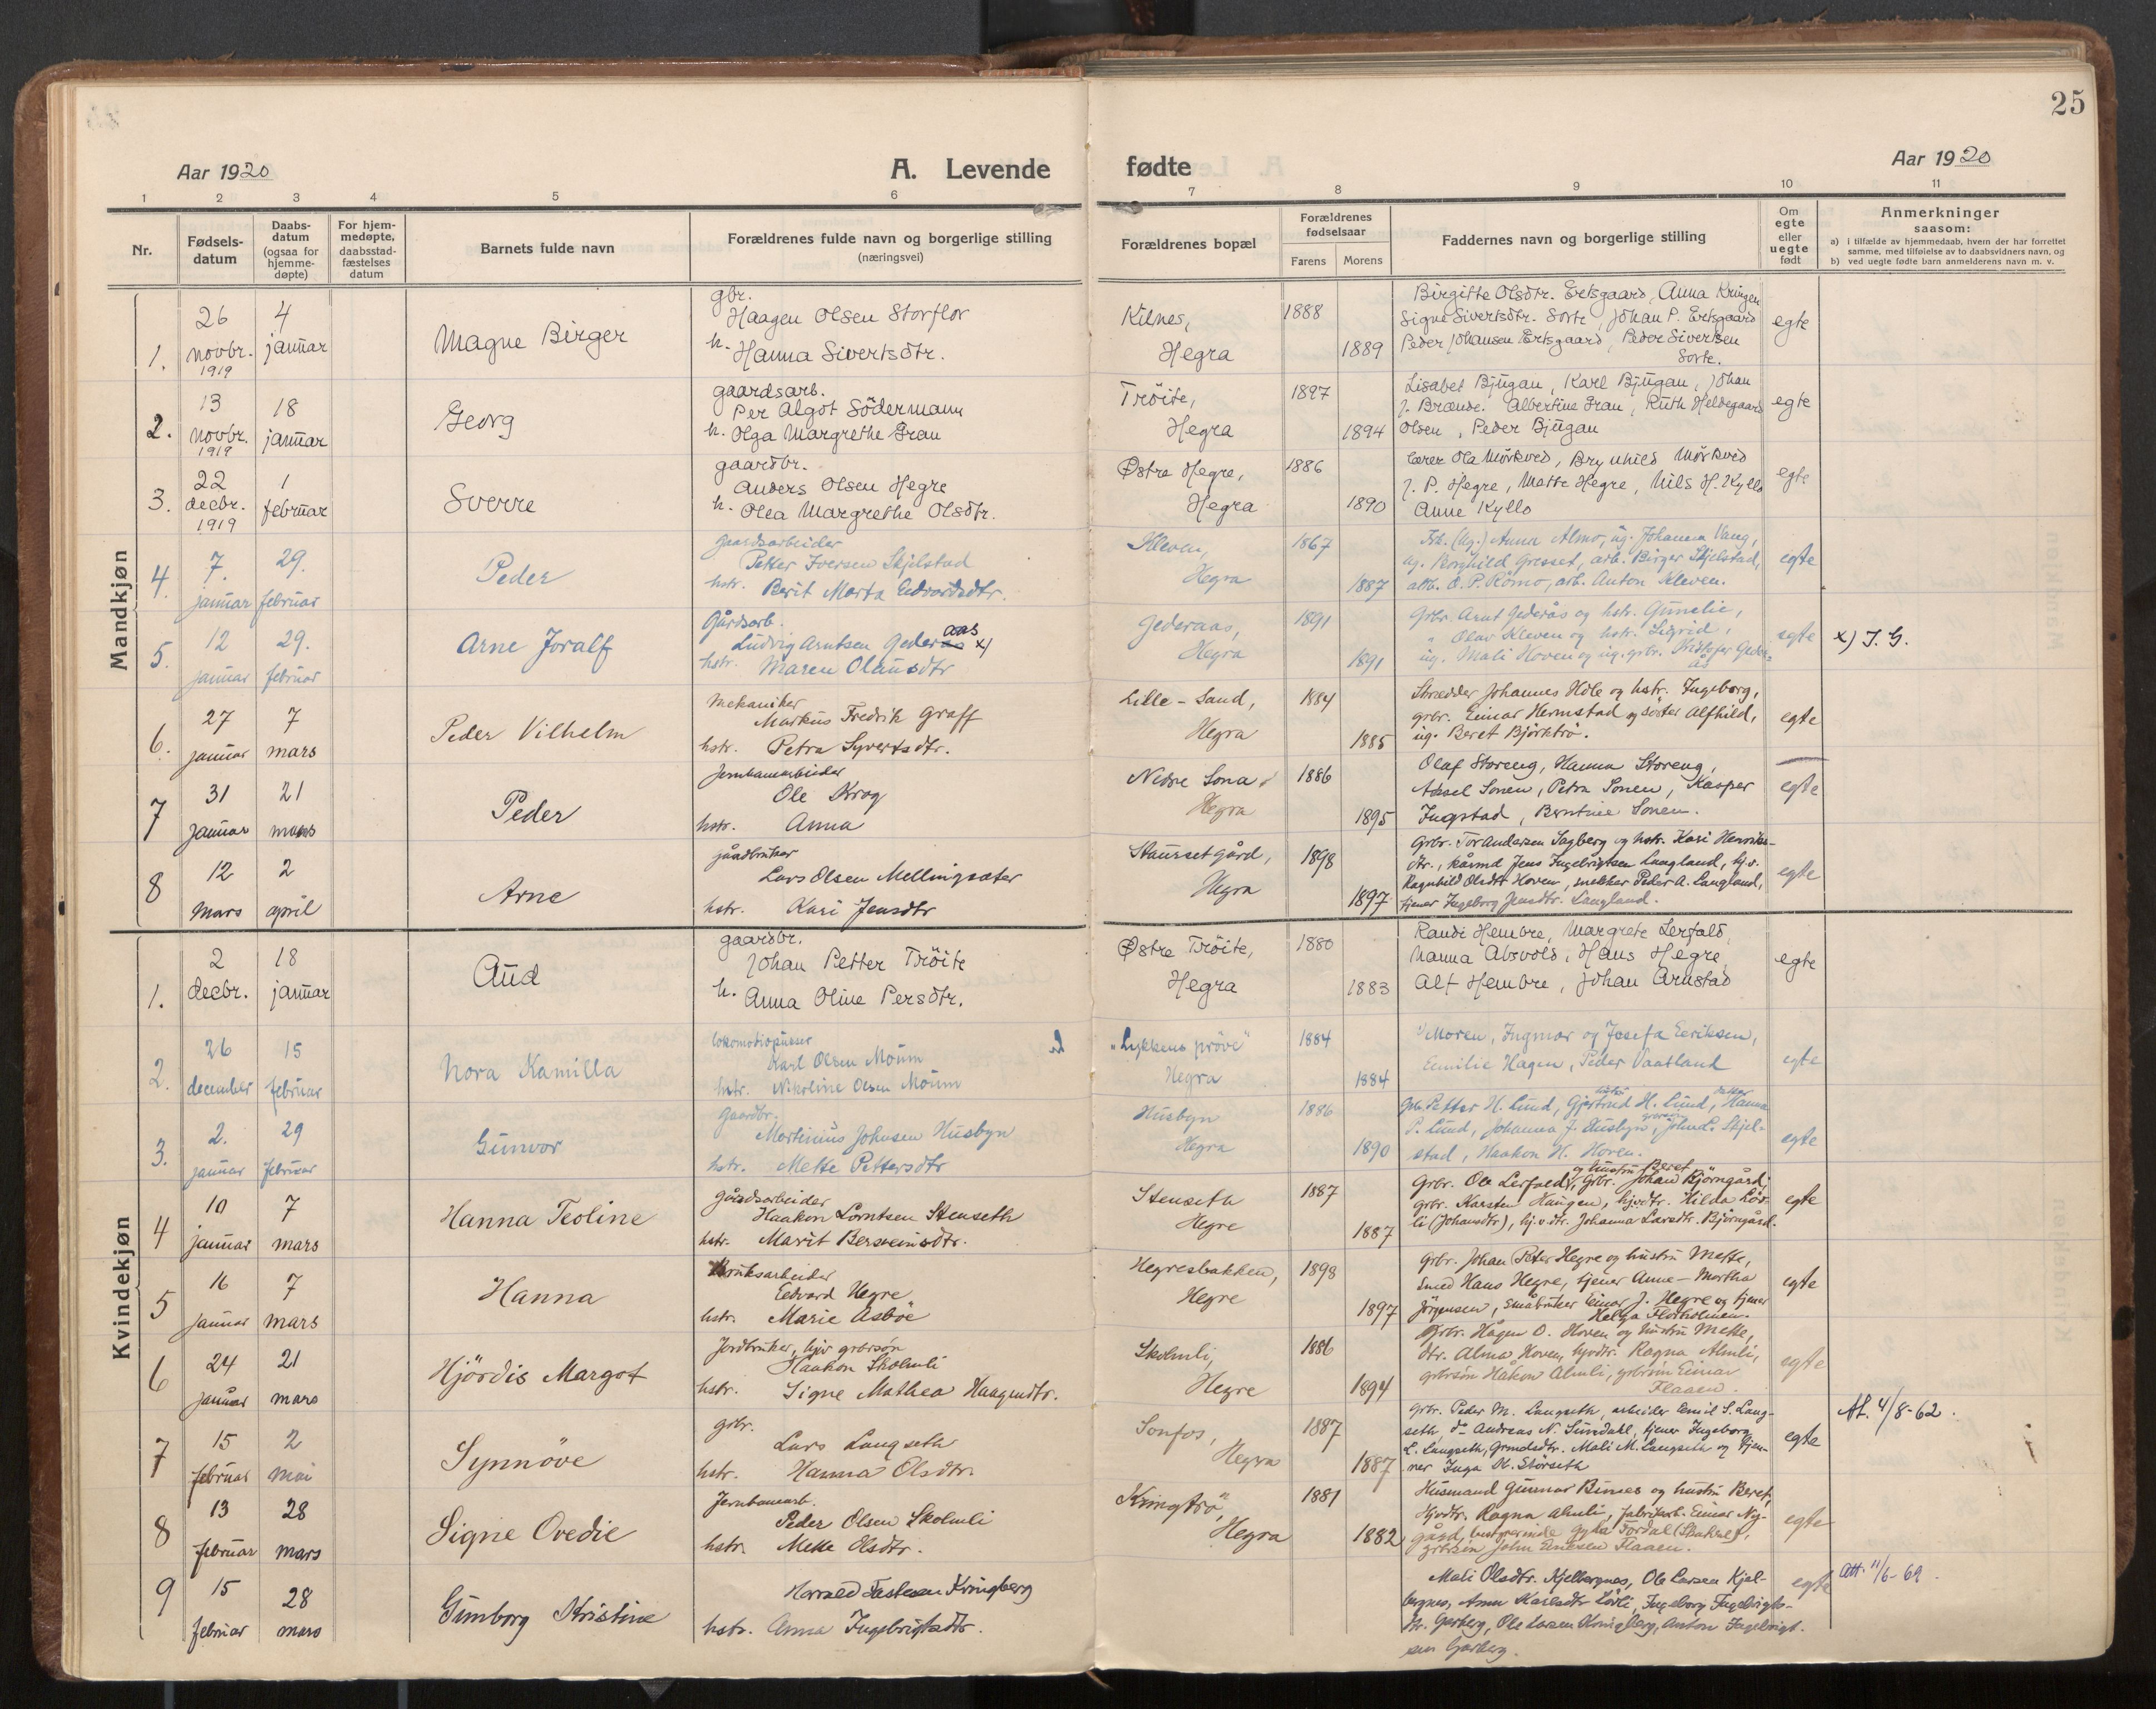 25
Aar 1920
A. Levende
fødte
Aar 1920
1 2 3 4 5 6 7 8 9 10 11
Nr.
Fødsels-
datum
Daabs-
datum
(ogsaa for
hjemme-
døpte)
For hjem-
medøpte,
daabsstad-
fæstelses
datum
Barnets fulde navn
Forældrenes fulde navn og borgerlige stilling
(næringsvei)
Forældrenes bopæl
Forældrenes
fødselsaar
Farens Morens
Faddernes navn og borgerlige stilling
Om
egte
eller
uegte
født
Anmerkninger
saasom:
a) i tilfælde av hjemmedaab, hvem der har forrettet
samme, med tilføielse av to daabsvidners navn, og
b) ved uegte fødte barn anmelderens navn m. v.
Mandkjøn
1. 26 novbr. 1919 4 januar Magne Birger
gbr. Haagen Olsen Storflor
h. Hanna Sivertsdtr.
Kilnes, Hegra 1888 1889
Birgitte Olsdtr. Ertsgaard, Anna Kringen
Signe Sivertsdtr. Sorte, Johan P. Ertsgaard
Peder Johansen Ertsgaard, Peder Sivertsen
Sorte.
egte
2. 13 novbr. 1919 18 januar Georg
gaardsarb.
Per Algot Södermann
h. Olga Margrethe Grau
Tröite, Hegra 1897 1894
Lisabet Bjugan, Karl Bjugan, Johan
J. Brænde. Albertine Grau, Ruth Heldegaard
Olsen, Peder Bjugan
egte
3. 22 decbr. 1919 1 februar Sverre
gaardbr.
Anders Olsen Hegre
h. Olea Margrethe Olsdtr.
Østre Hegre, Hegra 1886 1890
lærer Ola Mörkved, Brynhild Mörkved
J. P. Hegre, Matte Hegre, Nils H. Kyllo
Anne Kyllo
egte
4. 7. januar 29. februar Peder
Gaardsarbeider
Petter Iversen Skjelstad
hstr. Berit Marta Edvardsdtr.
Kleven, Hegra 1867 1887
Anna Almo, ug. Johanna Vang,
ug. Borghild Gresset, arb. Birger Skjelstad,
arb. O. P. Römo, arb. Anton Kleven.
egte
5. 12 januar 29. februar Arne Joralf
Gårdsarb.
Ludvig Arntsen Gederaas x)
hstr. Maren Olausdtr
Gederaas, Hegra 1891 1891
Grbr. Arnt Gederås og hstr. Gunelie,
" Olav Kleven og hstr. Sigrid,
ug. Mali Hoven og ug. grbr. Kristofer Geder-
ås
egte
x) J. G.
6. 27 januar 7 mars Peder Vilhelm
Mekaniker
Markus Fredrik Graff
hstr. Petra Syvertsdtr.
Lille-Sand, Hegra 1884 1885
Skrædder Johannes Hole og hstr. Ingeborg,
grbr. Einar Hermstad og söster Alfhild,
ug. Beret Björktrö.
egte
7 31 januar 21 mars Peder
Jernbanearbeider
Ole Krog
hstr. Anna
Nedre Sona, Hegra 1886 1895
Olaf Storeng, Hanna Storeng,
Aksel Sonen, Petra Sonen, Kasper
Ingstad, Berntine Sonen.
egte
8 12 mars 2 april Arne
gårdbruker
Lars Olsen Mellingsæter
hstr. Kari Jensdtr
Staursetgård, Hegra 1898 1897
Grbr. Tor Andersen Sagberg og hstr. Kari Henriks-
dtr., kårmd Jens Ingebrigtsen Langland, hj.v.
Ragnhild Olsdtr Hoven, snekker Peder A. Langland,
tjener Ingeborg Jensdtr. Langland.
egte
Kvindekjøn
1. 2 decbr. 18 januar Aud
gaardbr.
Johan Petter Tröite
h. Anna Oline Persdtr.
Østre Tröite, Hegra 1880 1883
Randi Hembre, Margrete Lerfald,
Nanna Absvold, Hans Hegre
Alf Hembre, Johan Arnstad
egte
2. 26 december 15 februar Nora Kamilla
Lokomotivpusser
Karl Olsen Moum
hstr. Nikoline Olsen Moum
"Lykkens pröve" Hegra 1884 1884
Moren, Ingmar og Josefa Eeriksen,
Emilie Hagen, Peder Vaatland
egte
3. 2. januar 29 februar Gunvor
Gaardbr.
Martinius Johnsen Husbyn
hstr. Mette Pettersdtr
Husbyn Hegra 1886 1890
Grb. Petter H. Lund, hustru Gjertrud H. Lund, datter Hanna
P. Lund, Johanna J. Husbyn, John P. Skjel-
stad, Haakon H. Hoven.
egte
4 10 januar 7 mars Hanna Teoline
gårdsarbeider
Haakon Lorntsen Stenseth
hstr. Marit Bersveinsdtr.
Stenseth Hegre 1887 1887
Grbr. Ole Lerfald og hustru Beret, Grbr. Johan Björngård,
grbr. Karsten Haugen, hjvdtr. Hilda Löv-
li (Johansdtr), hj.v.dtr. Johanna Larsdtr. Björngård.
egte
5 16 januar 7 mars Hanna
Bruksarbeider
Edvard Hegre
hstr. Marie Åsböe
Hegresbakken, Hegre 1898 1897
Grbr. Johan Peter Hegre og hustru Mette,
Smed Hans Hegre, tjener Anne-Martha
Jörgensen, Småbruker Einar J. Hegre og tjener
Helga Florholmen.
egte
6 24 januar 21 mars Hjördis Margot
Jordbruker, hjv. grbrsön
Haakon Skolmli
hstr. Signe Mathea Haagensdtr.
Skolmli, Hegre 1886 1894
Grbr. Hågen O. Hoven og hustru Mette,
dtr. Alma Hoven, hjvdtr. Ragna Almli,
grbrsön Håkon Almli, grbrsön Einar
Flaaen.
egte
7 15 februar 2 mai Synnöve
grbr.
Lars Langseth
hstr. Hanna Olsdtr.
Sonfos, Hegra 1887 1887
Grbr. Peder M. Langseth, arbeider Emil S. Lang-
seth, do Andreas N. Sundahl, tjener Ingeborg
L. Langseth, Grmdsdtr. Mali M. Langseth og tjen-
ner Inga M. Störseth
egte
At. 4/8-62.
8 13 februar 28 mars Signe Ovedie
Jernbanearb.
Peder Olsen Skolmli
hstr. Mette Olsdtr.
Kringtrö, Hegra 1881 1882
Husmand Gunnar Bimes og hustru Beret,
Hjvdtr. Ragna Almli, fabrikarb. Einar Ny-
gård, Gyda Fordal,
grbrsön John Flaaen.
egte
9 15 februar 28 mars Gunborg Kristine
Harald Fastesen Kringberg
hstr. Anna Ingebrigtsdtr.
Mali Olsdtr. Kjelbergnes, Ole Larsen Kjel-
bergnes, Anna Karlsdtr Lövli, Ingeborg Ingebrigts-
dtr. Garberg, Ole Larsen Kringberg, Anton Ingebrigt-
sen Garberg.
egte
Att. 11/6-69.